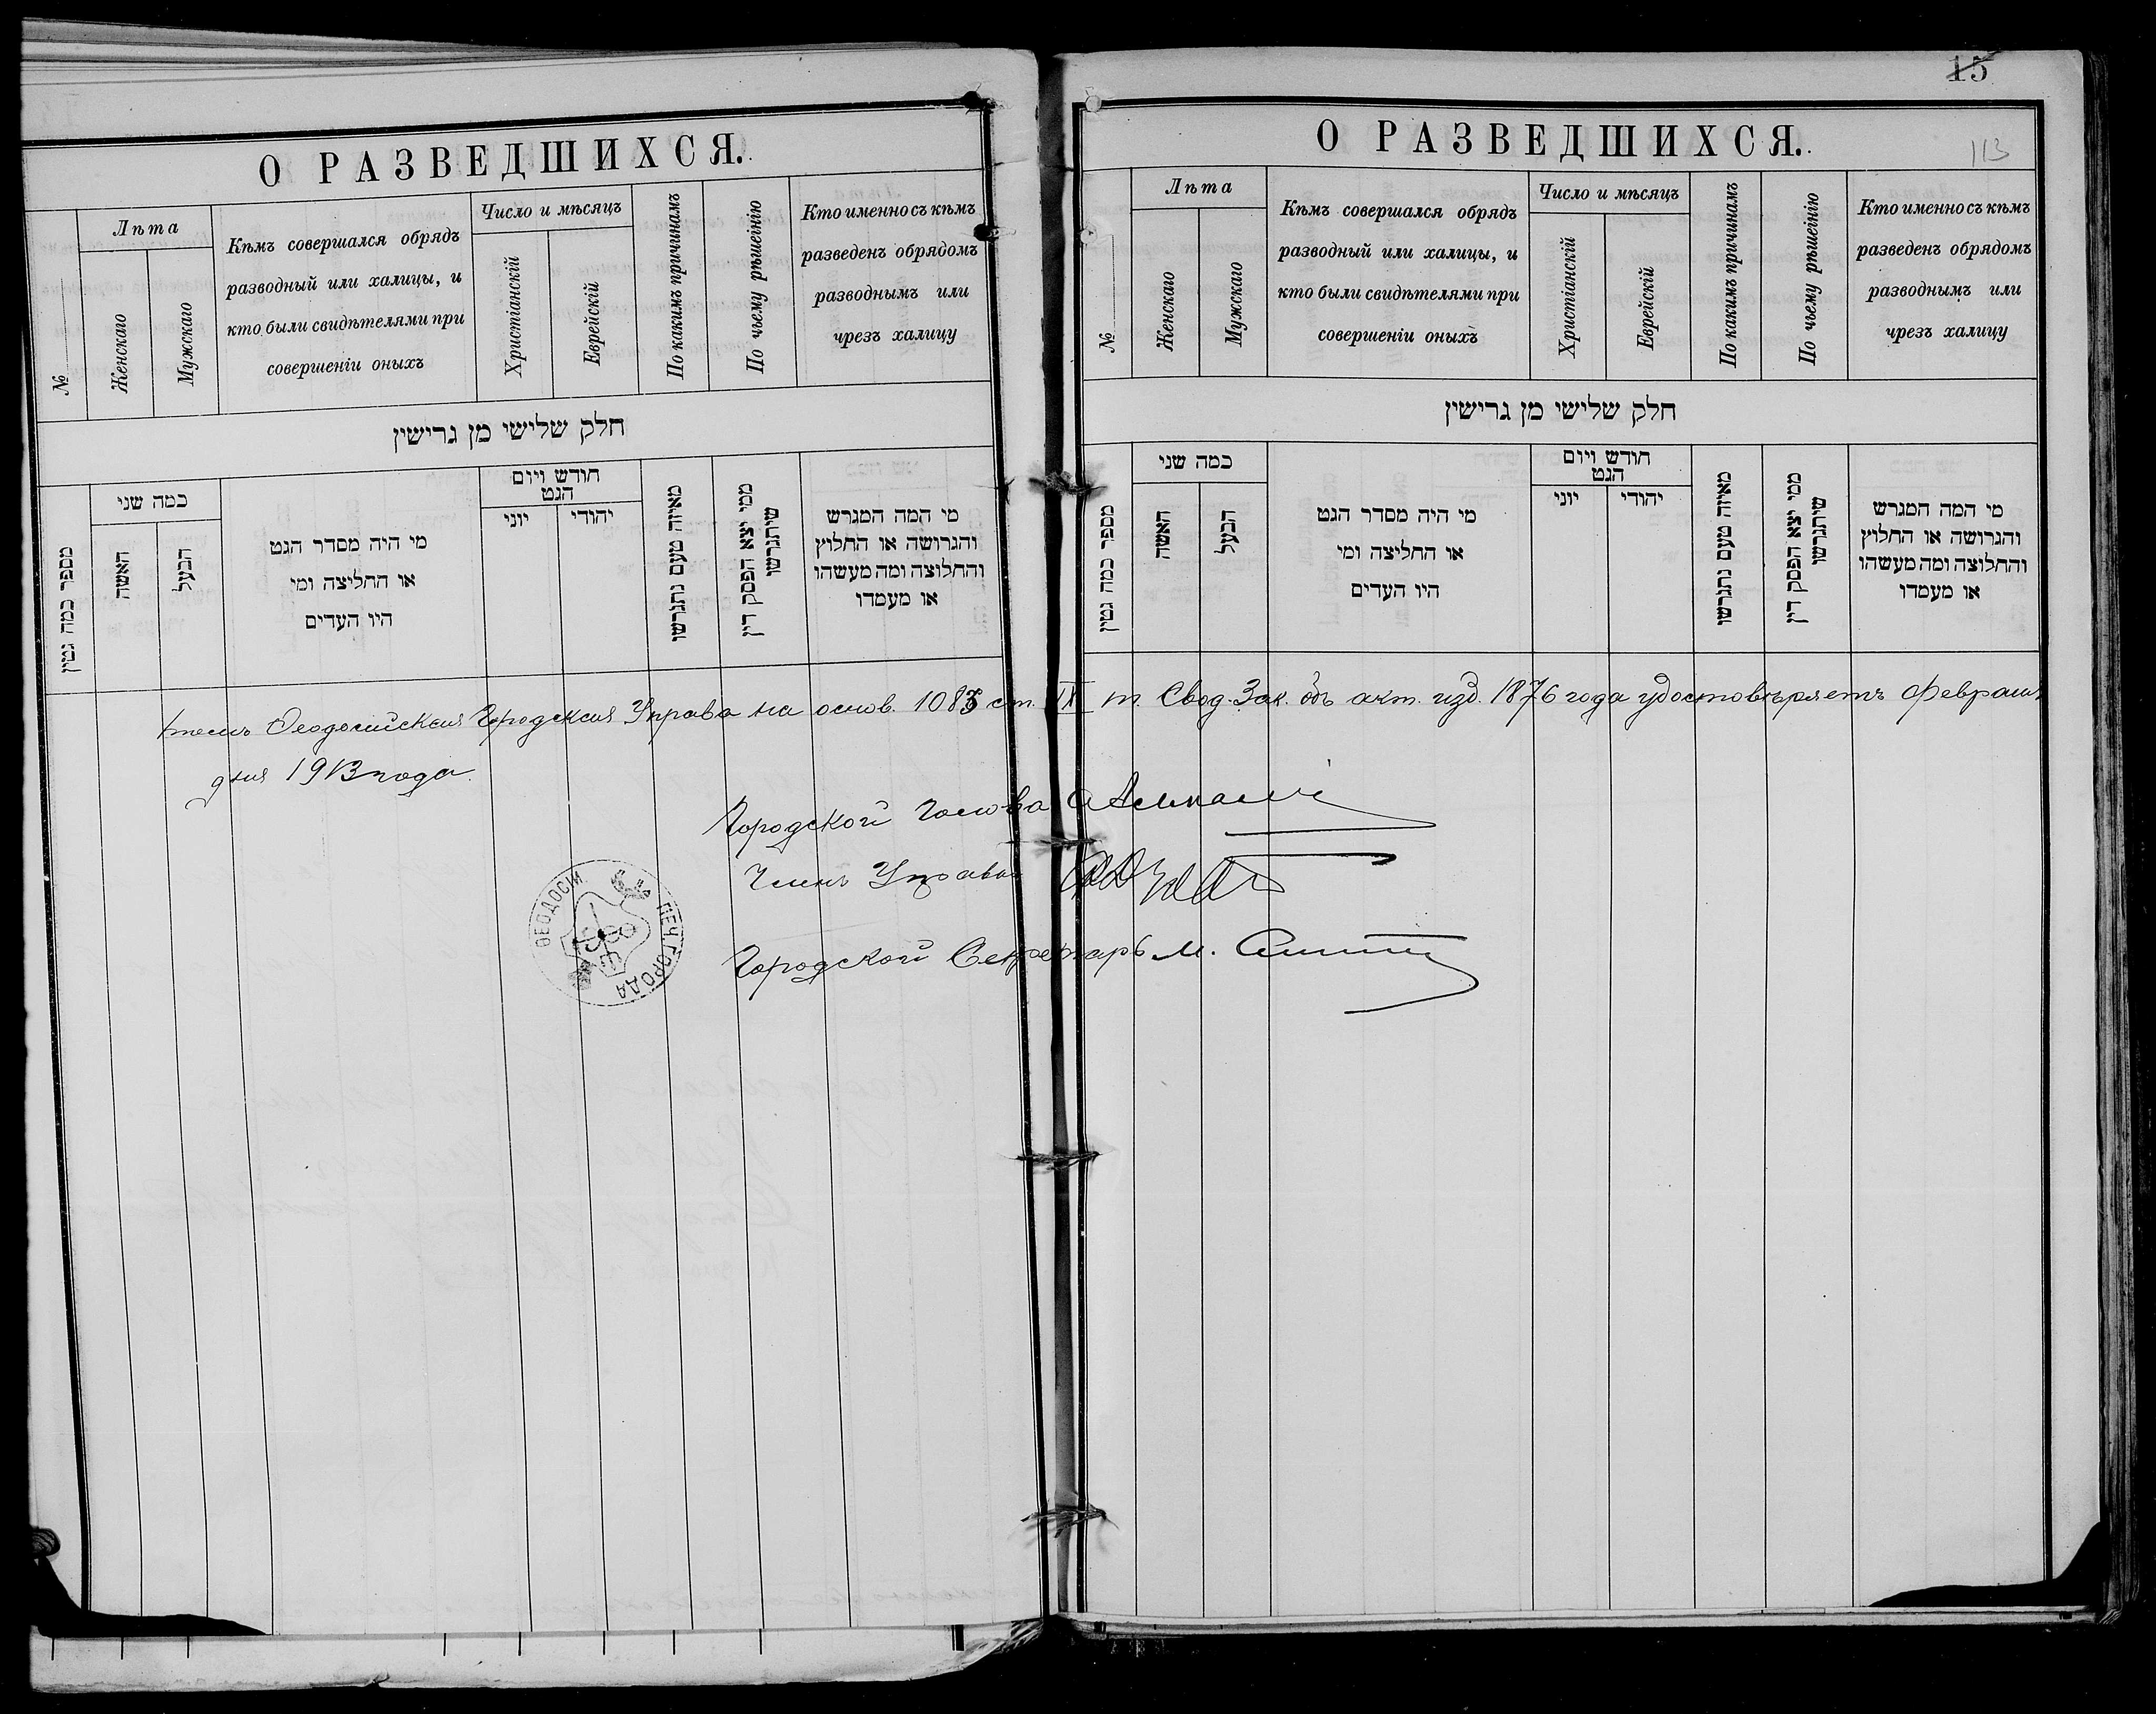 О РАЗВЕДШИХСЯ.
№
Лѣта
Женскаго
Мужскаго
Кѣмъ совершался обрядъ
разводный или халицы, и
кто были свидѣтелями при
совершеніи оныхъ
Число и мѣсяцъ
Христіанскій
Еврейскій
По какимъ причинамъ
По чьему рѣшенію
Кто именно съ кѣмъ
разведенъ обрядомъ
разводнымъ или
чрезъ халицу
חלק שלישי מן גרישין
מספר כמה גטין
כמה שני
האשה
הבעל
מי היה מסדר הגט
או החליצה ומי
היו העדים
חודש ויום
הגט
יוני
יהודי
מאיזה טעם נתגרשו
ממי יצא הפסק דין
שיתגרשו
מי המה המגרש
והגרושה או החלוץ
והחלוצה ומה מעשהו
או מעמדו
15
113
О РАЗВЕДШИХСЯ.
№
Лѣта
Женскаго
Мужскаго
Кѣмъ совершался обрядъ
разводный или халицы, и
кто были свидѣтелями при
совершеніи оныхъ
Число и мѣсяцъ
Христіанскій
Еврейскій
По какимъ причинамъ
По чьему рѣшенію
Кто именно съ кѣмъ
разведенъ обрядомъ
разводнымъ или
чрезъ халицу
חלק שלישי מן גרישין
מספר כמה גטין
כמה שני
האשה
הבעל
מי היה מסדר הגט
או החליצה ומי
היו העדים
חודש ויום
הגט
יוני
יהודי
מאיזה טעם נתגרשו
ממי יצא הפסק דין
שיתגרשו
מי המה המגרש
והגרושה או החלוץ
והחלוצה ומה מעשהו
או מעמדו
Ѳеодосійская Городская Управа на основ. ст. IX т. Свод. Зак. объ акт. изд. 1876 года удостовѣряетъ Февраля
дня 1913 года.
Городской Голова
Членъ Управы
Городской Секретарь М.
ПЕЧ. ГОРОДА ѲЕОДОСІИ